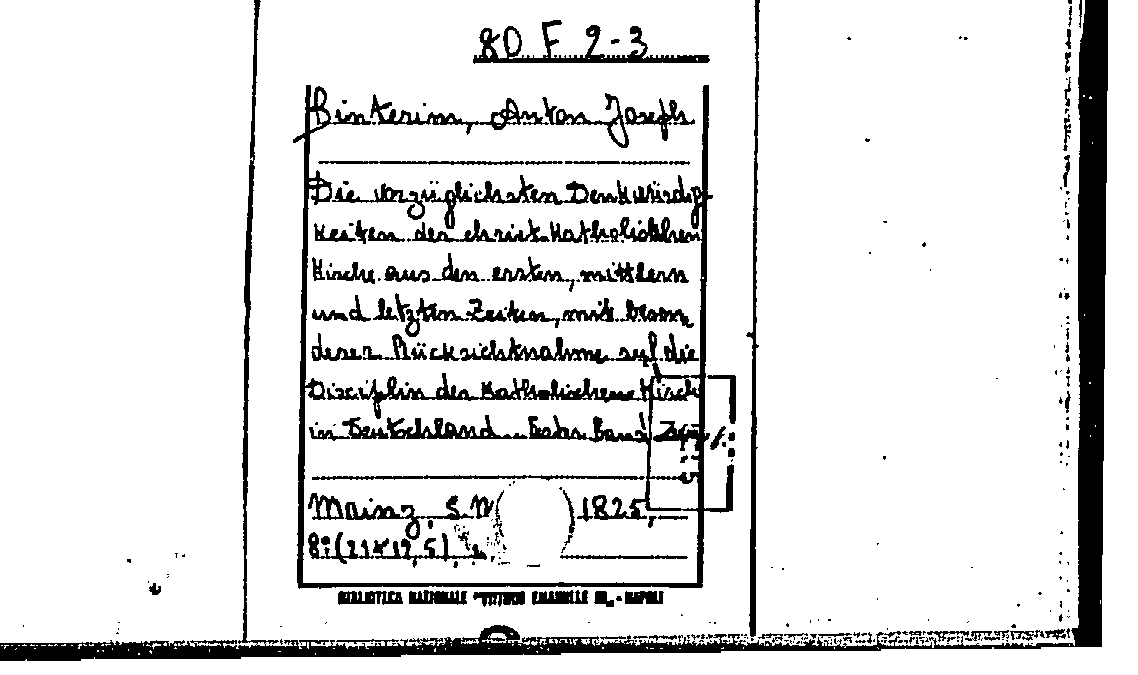 80 F 2-3
Binterim, Anton Joseph
Die vorzüglichsten Denkwürdig-
keiten der christ-katholischen
Kirche aus den ersten, mittlern
und letzten Zeiten, mit beson,
derer Rücksichtknahme auf die
Disciplin der katholischene Kirch
in Deutschland
Mainz, S. M 1825,
8° (21x12,5)
BIBLIOTECA NAZIONALE "VITTORIO EMANUELE III„ - NAPOLI